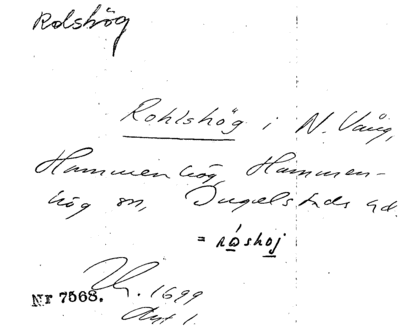 Rolshög
Rohlshög i N. Vång,
Hammenhög, Hammen-
hög sn, Ingelstads hd.
= råshoj
Nr 7568. 1699